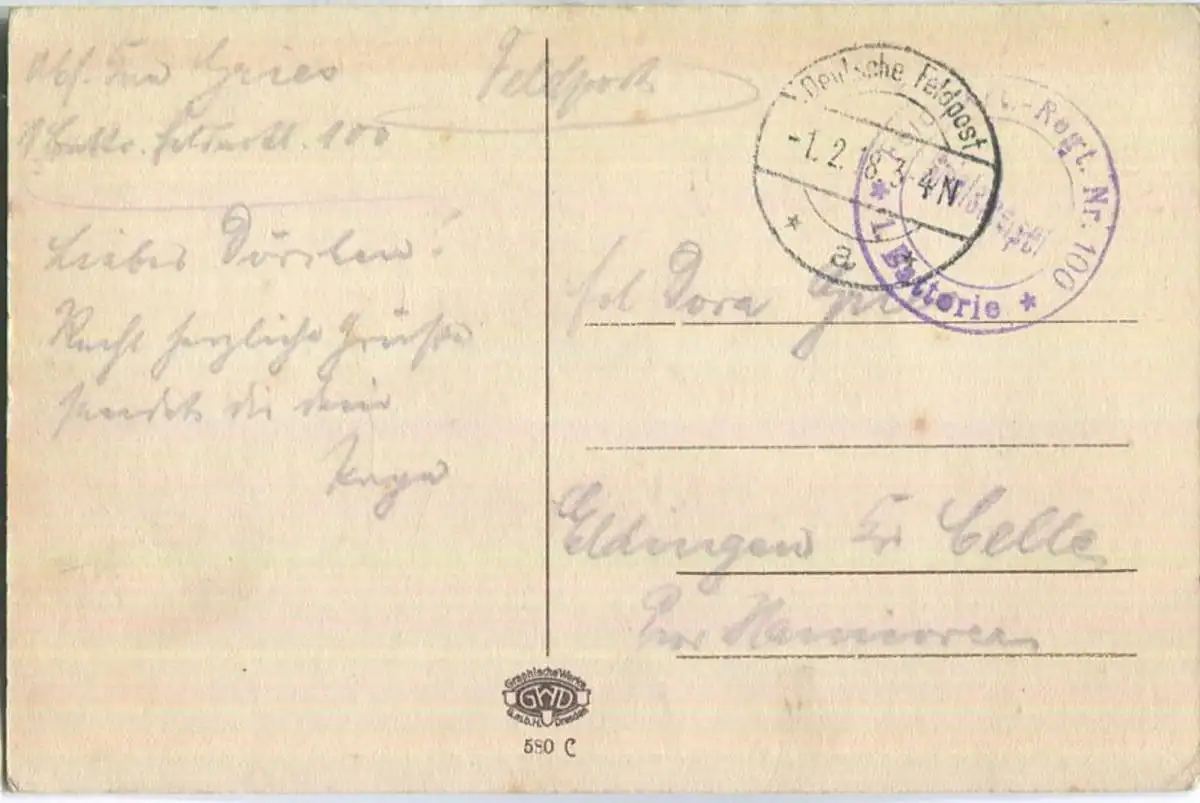 Abs. Gries
1 Battr. Feldartl. 100
Feldpost
Liebes Dörchen!
Recht herzliche Grüße
sendet dir dein
Papa
Deutsche Feldpost
-1.2.18.3-4N
* a *
-Regt. Nr. 100
* 1. Batterie *
Dora
Eldingen Kr Celle
Prov Hannover
Graphische Werke
GWD
G.m.b.H. Dresden
580 C